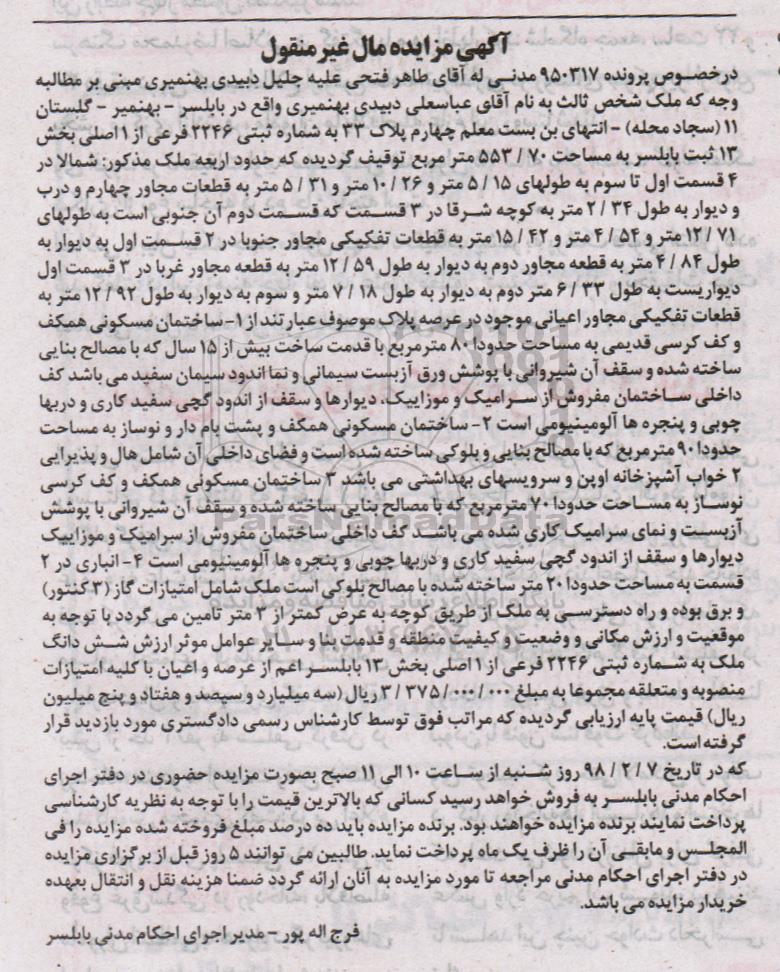 آگهی مزایده مال غیر منقول
درخصوص پرونده ۹۵۰۳۱۷ مدنی له آقای طاهر فتحی علیه جلیل دبیدی بهنمیری مبنی بر مطالبه
وجه که ملک شخص ثالث به نام آقای عباسعلی دبیدی بهنمیری واقع در بابلسر - بهنمیر - گلبستان
۱۱ (سجاد محله) - انتهای بن بست معلم چهارم پلاک ۳۳ به شماره ثبتی ۲۲۴۶ فرعی از ۱ اصلی بخش
۱۳ ثبت بابلسر به مساحت ۷۰ / ۵۵۳ متر مربع توقیف گردیده که حدود اربعه ملک مذکور: شمالا در
۴ قسمت اول تا سوم به طولهای ۱۵ / ۵ متر و ۲۶ / ۱۰ متر و ۳۱ / ۵ متر به قطعات مجاور چهارم و درب
و دیوار به طول ۳۴ / ۲ متر به کوچه شرقا در ۳ قسمت که قسمت دوم آن جنوبی است به طولهای
۷۱ / ۱۲ متر و ۵۴ / ۴ متر و ۴۲ / ۱۵ متر به قطعات تفکیکی مجاور جنوبا در ۲ قسمت اول به دیوار به
طول ۸۴ / ۴ متر به قطعه مجاور دوم به دیوار به طول ۵۹ / ۱۲ متر به قطعه مجاور غربا در ۳ قسمت اول
دیواریست به طول ۳۳ / ۶ متر دوم به دیوار به طول ۱۸ / ۷ متر و سوم به دیوار به طول ۹۲ / ۱۲ متر به
قطعات تفکیکی مجاور اعیانی موجود در عرصه پلاک موصوف عبارتند از ۱- ساختمان مسکونی همکف
و کف کرسی قدیمی به مساحت حدودا ۸۰ مترمربع با قدمت ساخت بیش از ۱۵ سال که با مصالح بنایی
ساخته شده و سقف آن شیروانی با پوشش ورق آزبست سیمانی و نما اندود سیمان سفید می باشد کف
داخلی ساختمان مفروش از سرامیک و موزاییک، دیوارها و سقف از اندود گچی سفید کاری و دربها
چوبی و پنجره ها آلومینیومی است ۲- ساختمان مسکونی همکف و پشت بام دار و نوساز به مساحت
حدودا ۹۰ مترمربع که با مصالح بنایی و بلوکی ساخته شده است و فضای داخلی آن شامل هال و پذیرایی
۲ خواب آشپزخانه اوپن و سرویسهای بهداشتی می باشد ۳ ساختمان مسکونی همکف و کف کرسی
نوساز به مساحت حدودا ۷۰ مترمربع که با مصالح بنایی ساخته شده و سقف آن شیروانی با پوشش
آزبست و نمای سرامیک کاری شده می باشد کف داخلی ساختمان مفروش از سرامیک و موزاییک
دیوارها و سقف از اندود گچی سفید کاری و دربها چوبی و پنجره ها آلومینیومی است ۴- انباری در ۲
قسمت به مساحت حدودا ۲۰ متر ساخته شده با مصالح بلوکی است ملک شامل امتیازات گاز (۳ کنتور)
و برق بوده و راه دسترسی به ملک از طریق کوچه به عرض کمتر از ۳ متر تامین می گردد با توجه به
موقعیت و ارزش مکانی و وضعیت و کیفیت منطقه و قدمت بنا و سایر عوامل موثر ارزش شش دانگ
ملک به شماره ثبتی ۲۲۴۶ فرعی از ۱ اصلی بخش ۱۳ بابلسر اعم از عرصه و اعیان با کلیه امتیازات
منصوبه و متعلقه مجموعا به مبلغ ۰۰۰ / ۰۰۰ / ۳۷۵ / ۳ ریال (سه میلیارد و سیصد و هفتاد و پنج میلیون
ریال) قیمت پایه ارزیابی گردیده که مراتب فوق توسط کارشناس رسمی دادگستری مورد بازدید قرار
گرفته است.
که در تاریخ ۷ / ۲ / ۹۸ روز شنبه از ساعت ۱۰ الی ۱۱ صبح بصورت مزایده حضوری در دفتر اجرای
احکام مدنی بابلسر به فروش خواهد رسید کسانی که بالاترین قیمت را با توجه به نظریه کارشناسی
پرداخت نمایند برنده مزایده خواهند بود. برنده مزایده باید ده درصد مبلغ فروخته شده مزایده را فی
المجلس و مابقی آن را ظرف یک ماه پرداخت نماید. طالبین می توانند ۵ روز قبل از برگزاری مزایده
در دفتر اجرای احکام مدنی مراجعه تا مورد مزایده به آنان ارائه گردد ضمنا هزینه نقل و انتقال بعهده
خریدار مزایده می باشد.
فرج اله پور - مدیر اجرای احکام مدنی بابلسر
ParsNamadData